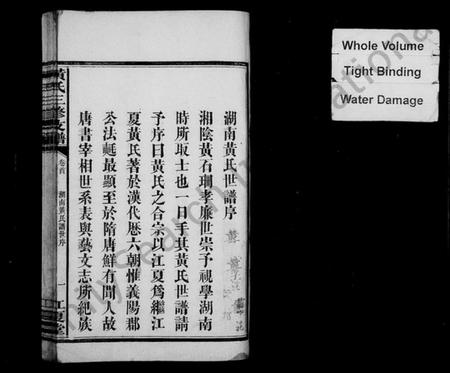 湖南黃氏世譜序
湘陰黃有珊孝廉世崇予視學湖南
時所取士也一日手其黃氏世譜請
予序曰黃氏之合宗以江夏為繼江
夏黃氏著於漢代歷六朝惟義陽郡
公法𣰰最顯至於隋唐鮮有聞人故
唐書宰相世系表與藝文志所紀族
黃氏三修支譜
卷首
湖南黃氏譜世序
一
江夏堂
Whole Volume
Tight Binding
Water Damage